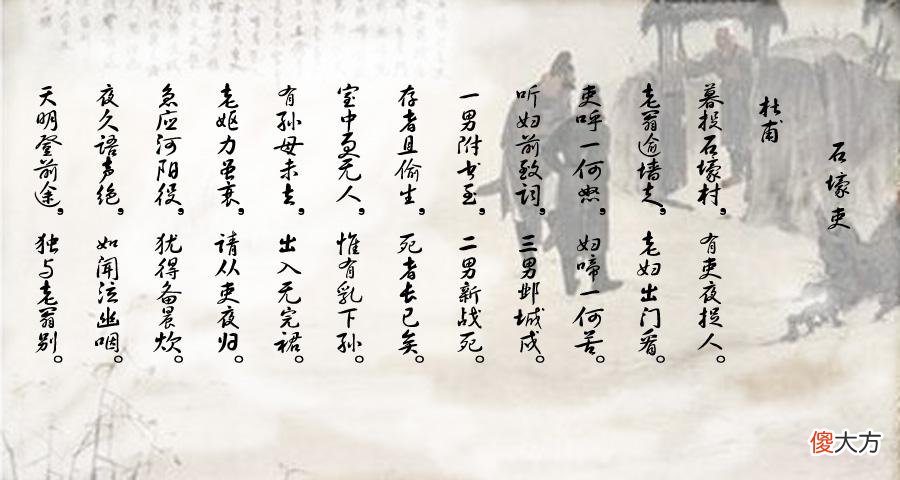 石壕吏
杜甫
暮投石壕村,有吏夜捉人。
老翁逾墙走,老妇出门看。
吏呼一何怒,妇啼一何苦。
听妇前致词,三男邺城戍。
一男附书至,二男新战死。
存者且偷生,死者长已矣。
室中更无人,惟有乳下孙。
有孙母未去,出入无完裙。
老妪力虽衰,请从吏夜归。
急应河阳役,犹得备晨炊。
夜久语声绝,如闻泣幽咽。
天明登前途,独与老翁别。
傻大方